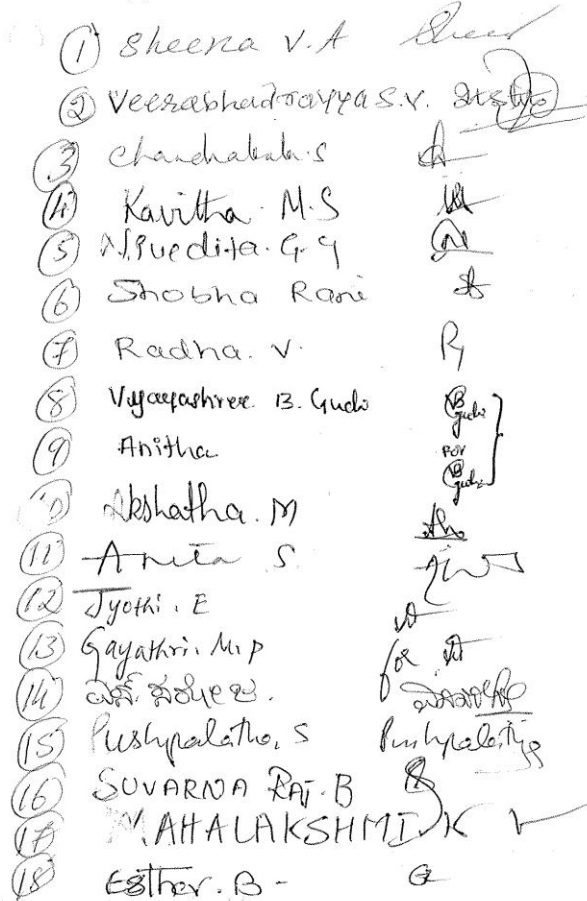 1 Sheena V.A Sheen
2 Veerabhadrayya S.V.
3 Chandrakala. S
4 Kavitha. M.S
5 Nivedita. G. G
6 Shobha Rani
7 Radha. V.
8 Vijayashree. B. Gudi VB Gudi
9 Anitha For VB Gudi
10 Akshatha. M
11 Anita S.
12 Jyothi. E
13 Gayathri. M. P for
14 ಎಸ್. ಸರೋಜ.
15 Pushpalatha. S Pushpalatha
16 SUVARNA RAJ. B
17 MAHALAKSHMI. K
18 Esther. B -